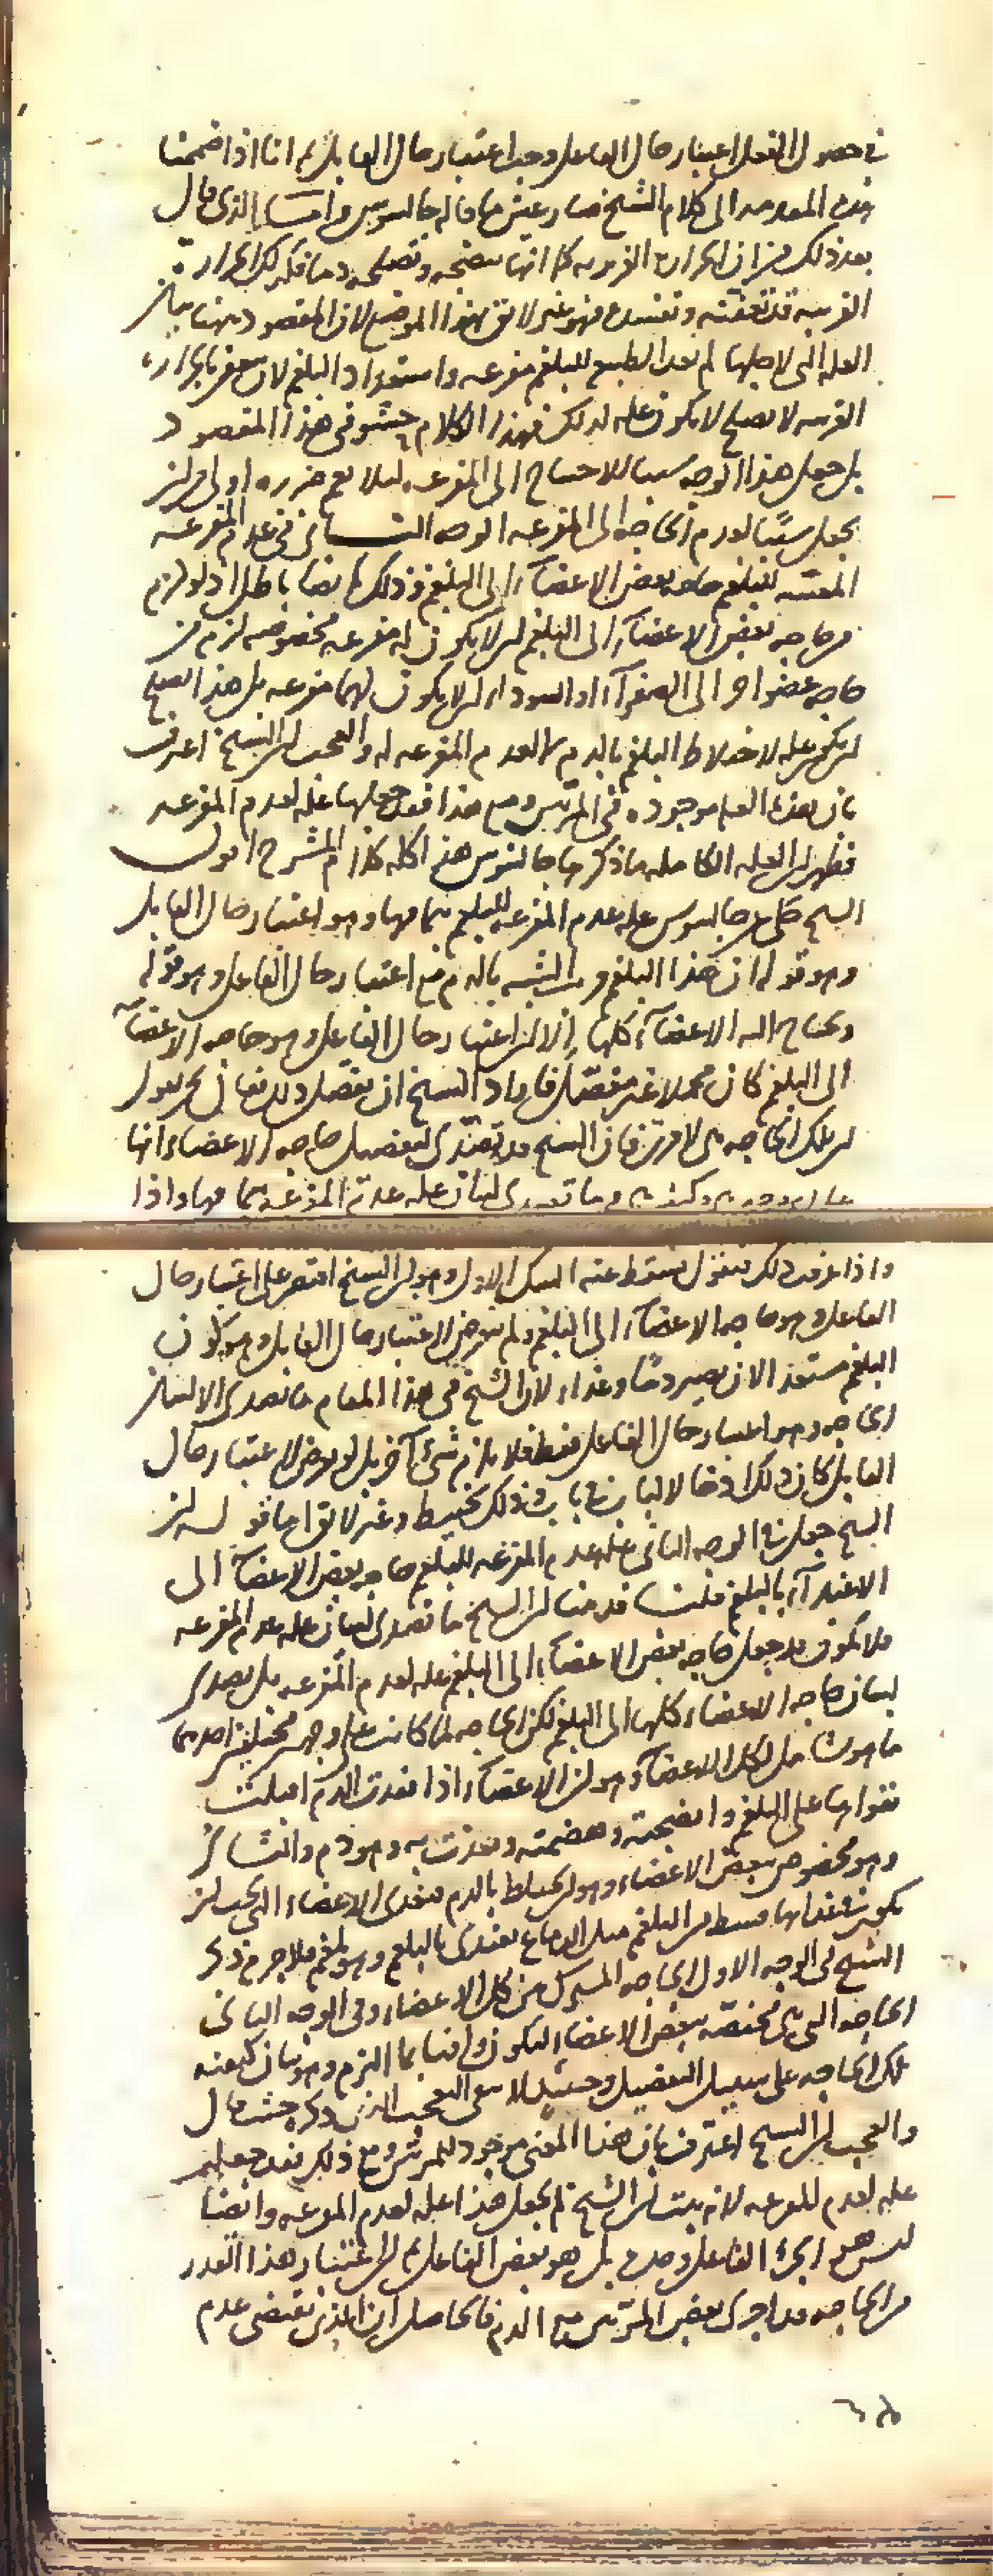 في حصول الفعل اعتبار حال الفاعل وجب اعتبار حال القابل ثم انا اذا ضممنا
هذه المقدمه الى كلام الشيخ صار عين ما قاله جالينوس واما الذي قال
بعد ذلك من ان الحراره الغريبه كما انها تنضجه وتصلحه فكذلك الحراره
الغريبه قد تعفنه وتفسده فهو غير لائق بهذا الموضع لان المقصود ههنا بيان
العله التي لاجلها لم تعد الطبيعه للبلغم مفرغه واستعداد البلغم لان يتعفن بالحراره
الغريبه لا يصلح لان يكون عله لذلك فهذا الكلام حشو في هذا المقصود
بل جعل هذا الوجه سببا للاحتياج الى المفرغه لئلا يعم ضرره اولى من ان
يجعل سببا لعدم الحاجه الى المفرغه الوجه الثاني في عدم المفرغه
للبلغم حاجه بعض الاعضاء الى البلغم وذلك ايضا باطل اذ لو لزم
من حاجه بعض الاعضاء الى البلغم ان لا يكون له مفرغه مخصوصه لزم من
حاجه عضو اخر الى الصفراء او السوداء ان لا يكون لهما مفرغه بل هذا يصلح
ان يكون عله لاختلاط البلغم بالدم لا لعدم المفرغه له والعجب ان الشيخ اعترف
بان هذه العله موجوده في المرتين ومع هذا فقد جعلها عله لعدم المفرغه
فظهر ان العله الكامله ما ذكرها جالينوس هذا كله كلام المشرح اقول
الشيخ حكى عن جالينوس عله عدم المفرغه للبلغم بتمامها وهو اعتبار حال القابل
وهو قوله ان هذا البلغم قريب الشبه بالدم مع اعتبار حال الفاعل وهو قوله
وتحتاج اليه الاعضاء كلها الا ان اعتبار حال الفاعل وهو حاجه الاعضاء
الى البلغم كان مجملا غير مفصل فاراد الشيخ ان يفصل ونحن نقول
ان تلك الحاجه هي لامرين فان الشيخ قد تصدى لتفصيل حاجه الاعضاء انها
وما تصدى لبيان عله عدم المفرغه بتمامها واذا
واذا عرفت ذلك فنقول سقط عنه الشك الاول وهو ان الشيخ اقتصر على اعتبار حال
الفاعل وهو حاجه الاعضاء الى البلغم ولم يتعرض لاعتبار حال القابل وهو كون
البلغم مستعدا لان يصير دما وغذاء لان الشيخ في هذا المقام ما تصدى الا لبيان
الحاجه وهو اعتبار حال الفاعل فقط فلا يلزم شيء آخر بل لو تعرض لاعتبار حال
القابل كان ذلك ادخالا لباب في باب وذلك تخبيط وغير لائق اما قوله ان
الشيخ جعل في الوجه الثاني عله عدم المفرغه للبلغم حاجه بعض الاعضاء الى
الاغتذاء بالبلغم قلت قد بينا ان الشيخ ما تصدى لبيان عله عدم المفرغه
فلا يكون قد جعل حاجه بعض الاعضاء الى البلغم عله لعدم المفرغه بل تصدى
لبيان حاجه الاعضاء كلها الى البلغم لكن الحاجه لما كانت على وجهين مختلفين احدهما
ما هو شامل لكل الاعضاء وهو ان الاعضاء اذا فقدت الدم اقبلت
بقواها على البلغم وانضجته وهضمته وتغذت به وهو دم والثاني
وهو مخصوص ببعض الاعضاء وهو ان يختلط بالدم فيغذي الاعضاء التي يجب ان
يكون في غذائها قسط من البلغم مثل الدماغ يغتذي بالبلغم وهو بلغم فلا جرم ذكر
الشيخ في الوجه الاول الحاجه المشتركه من كل الاعضاء وفي الوجه الثاني
الحاجه التي هي مختصه ببعض الاعضاء ليكون وافيا بما التزم وهو بيان كيفيه
تلك الحاجه على سبيل التفصيل وحينئذ لا يبقى التعجب الذي ذكره حيث قال
والعجب ان الشيخ اعترف بان هذا المعنى موجود للمرتين ومع ذلك فقد جعله
عله لعدم المفرغه لانه بينا ان الشيخ لم يجعل هذا عله لعدم المفرغه وايضا
ليس هو اجزاء الفاعل وحده بل هو بعض الفاعل ثم ان اعتبار هذا القدر
من الحاجه قد اجرى بعض المرتين مع الدم فالحاصل ان الذي يقتضي عدم